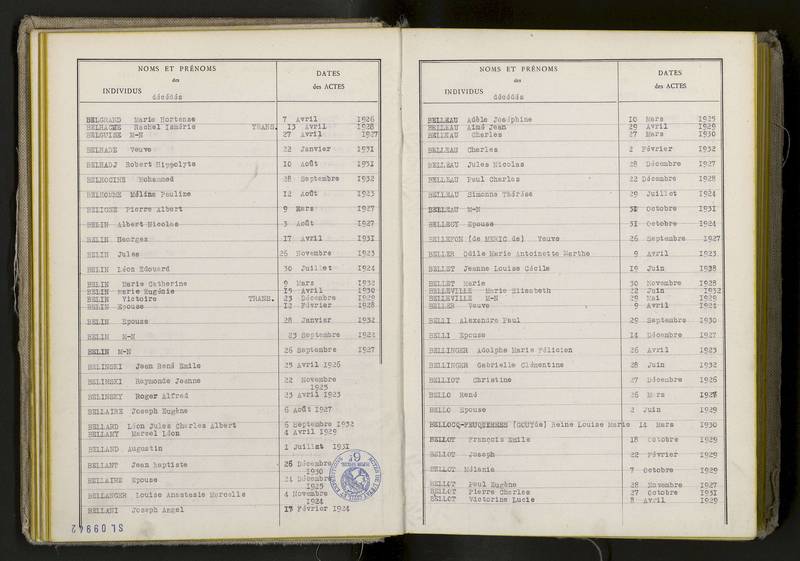 NOMS ET PRÉNOMS
des
INDIVIDUS
décédés
DATES
des ACTES
BELGRAND Marie Hortense 7 Avril 1926
BELHACHE Rachel Ismérie TRANS. 13 Avril 1928
BELGUISE M-N 27 Avril 1927
BELHADE Veuve 22 Janvier 1931
BELHADJ Robert Hippolyte 10 Août 1931
BELHOCINE Mohammed 28 Septembre 1932
BELHOMME Méline Pauline 12 Août 1923
BELIGNE Pierre Albert 9 Mars 1927
BELIN Albert Nicolas 3 Août 1927
BELIN Georges 17 Avril 1931
BELIN Jules 26 Novembre 1923
BELIN Léon Edouard 30 Juillet 1924
BELIN Marie Catherine 9 Mars 1932
BELIN Marie Eugénie 15 Avril 1930
BELIN Victoire TRANS. 23 Décembre 1929
BELIN Epouse 12 Février 1928
BELIN Epouse 28 Janvier 1932
BELIN M-N 23 Septembre 1924
BELIN M-N 26 Septembre 1927
BELINSKI Jean René Emile 25 Avril 1926
BELINSKI Raymonde Jeanne 22 Novembre
1925
BELINSKY Roger Alfred 23 Avril 1923
BELLAIRE Joseph Eugène 6 Août 1927
BELLARD Léon Jules Charles Albert 6 Septembre 1932
BELLANY Marcel Léon 4 Avril 1929
BELLAND Augustin 1 Juillet 1931
BELLANT Jean Baptiste 26 Décembre
1930
BELLAINE Epouse 24 Décembre
1925
BELLANGER Louise Anastasie Marcelle 4 Novembre
1924
BELLANI Joseph Angel 17 Février 1924
SL 09942
NOMS ET PRÉNOMS
des
INDIVIDUS
décédés
DATES
des ACTES
BELLEAU Adèle Joséphine 10 Mars 1925
BELLEAU Aimé Jean 29 Avril 1929
BELLEAU Charles 27 Mars 1930
BELLEAU Charles 2 Février 1932
BELLEAU Jules Nicolas 28 Décembre 1927
BELLEAU Paul Charles 22 Décembre 1928
BELLEAU Simonne Thérèse 29 Juillet 1924
BELLEAU M-N 31 Octobre 1931
BELLEGY Epouse 31 Octobre 1924
BELLEFON (de MERIC de) Veuve 26 Septembre 1927
BELLER Odile Marie Antoinette Marthe 9 Avril 1923
BELLET Jeanne Louise Cécile 19 Juin 1928
BELLET Marie 30 Novembre 1928
BELLEVILLE Marie Elisabeth 22 Juin 1932
BELLEVILLE M-N 29 Mai 1929
BELLER Veuve 9 Avril 1924
BELLI Alexandre Paul 29 Septembre 1930
BELLI Epouse 14 Décembre 1927
BELLINGER Adolphe Marie Félicien 26 Avril 1923
BELLINGER Gabrielle Clémentine 28 Juin 1932
BELLIOT Christine 27 Décembre 1926
BELLO René 26 Mars 1927
BELLO Epouse 2 Juin 1929
BELLOCQ-FEUQUERRES (GOUYée) Reine Louise Marie 14 Mars 1930
BELLOT François Emile 18 Octobre 1929
BELLOT Joseph 22 Février 1929
BELLOT Mélanie 7 Octobre 1929
BELLOT Paul Eugène 28 Novembre 1927
BELLOT Pierre Charles 27 Octobre 1931
BELLOT Victorine Lucie 8 Avril 1929